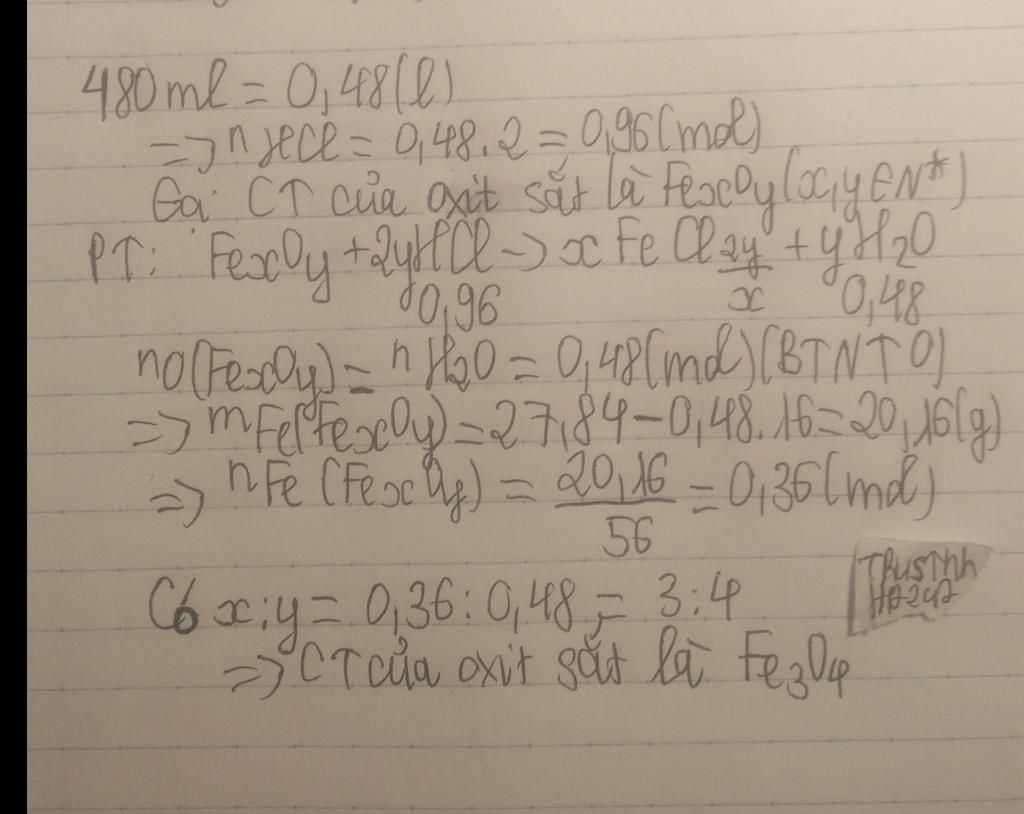 480ml = 0,48(l)
=> nHCl = 0,48.2 = 0,96(mol)
Gọi CT của oxit sắt là FexOy(x,y∈N*)
PT: FexOy + 2yHCl -> xFeCl2y/x + yH2O
0,96 0,48
nO(FexOy) = nH2O = 0,48(mol)(BTNT O)
=> mFe(FexOy) = 27,84 - 0,48.16 = 20,16(g)
=> nFe(FexOy) = 20,16/56 = 0,36(mol)
Có x:y = 0,36:0,48 = 3:4
=> CT của oxit sắt là Fe3O4